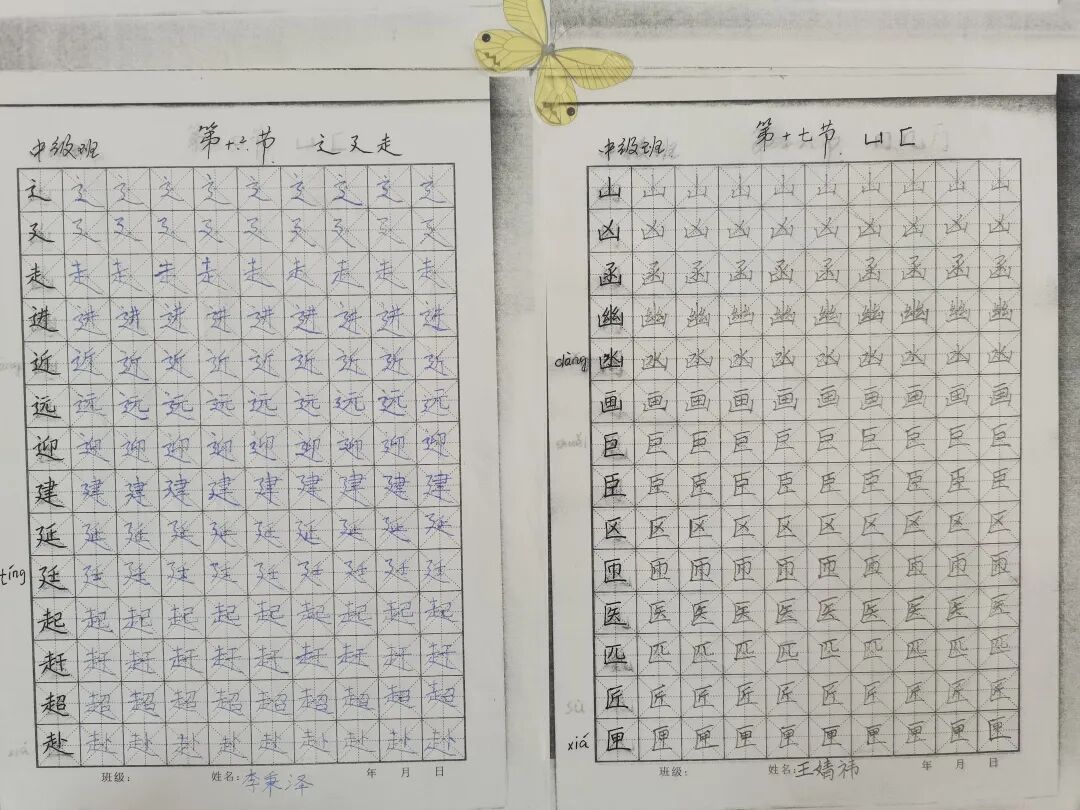 中级班 第十六节 辶 廴 走
辶 辶 辶 辶 辶 辶 辶 辶 辶 辶
廴 廴 廴 廴 廴 廴 廴 廴 廴 廴
走 走 走 走 走 走 走 走 走 走
进 进 进 进 进 进 进 进 进 进
近 近 近 近 近 近 近 近 近 近
远 远 远 远 远 远 远 远 远 远
迎 迎 迎 迎 迎 迎 迎 迎 迎 迎
建 建 建 建 建 建 建 建 建 建
延 延 延 延 延 延 延 延 延 延
tíng 廷 廷 廷 廷 廷 廷 廷 廷 廷 廷
起 起 起 起 起 起 起 起 起 起
赶 赶 赶 赶 赶 赶 赶 赶 赶 赶
超 超 超 超 超 超 超 超 超 超
赴 赴 赴 赴 赴 赴 赴 赴 赴 赴
班级： 姓名：李秉泽 年 月 日
中级班 第十七节 凵 匚
山 山 山 山 山 山 山 山 山 山
凶 凶 凶 凶 凶 凶 凶 凶 凶 凶
函 函 函 函 函 函 函 函 函 函
幽 幽 幽 幽 幽 幽 幽 幽 幽 幽
dàng 凼 凼 凼 凼 凼 凼 凼 凼 凼 凼
画 画 画 画 画 画 画 画 画 画
巨 巨 巨 巨 巨 巨 巨 巨 巨 巨
臣 臣 臣 臣 臣 臣 臣 臣 臣 臣
区 区 区 区 区 区 区 区 区 区
匝 匝 匝 匝 匝 匝 匝 匝 匝 匝
医 医 医 医 医 医 医 医 医 医
匹 匹 匹 匹 匹 匹 匹 匹 匹 匹
匠 匠 匠 匠 匠 匠 匠 匠 匠 匠
xiá 匣 匣 匣 匣 匣 匣 匣 匣 匣 匣
班级： 姓名：王婧祎 年 月 日